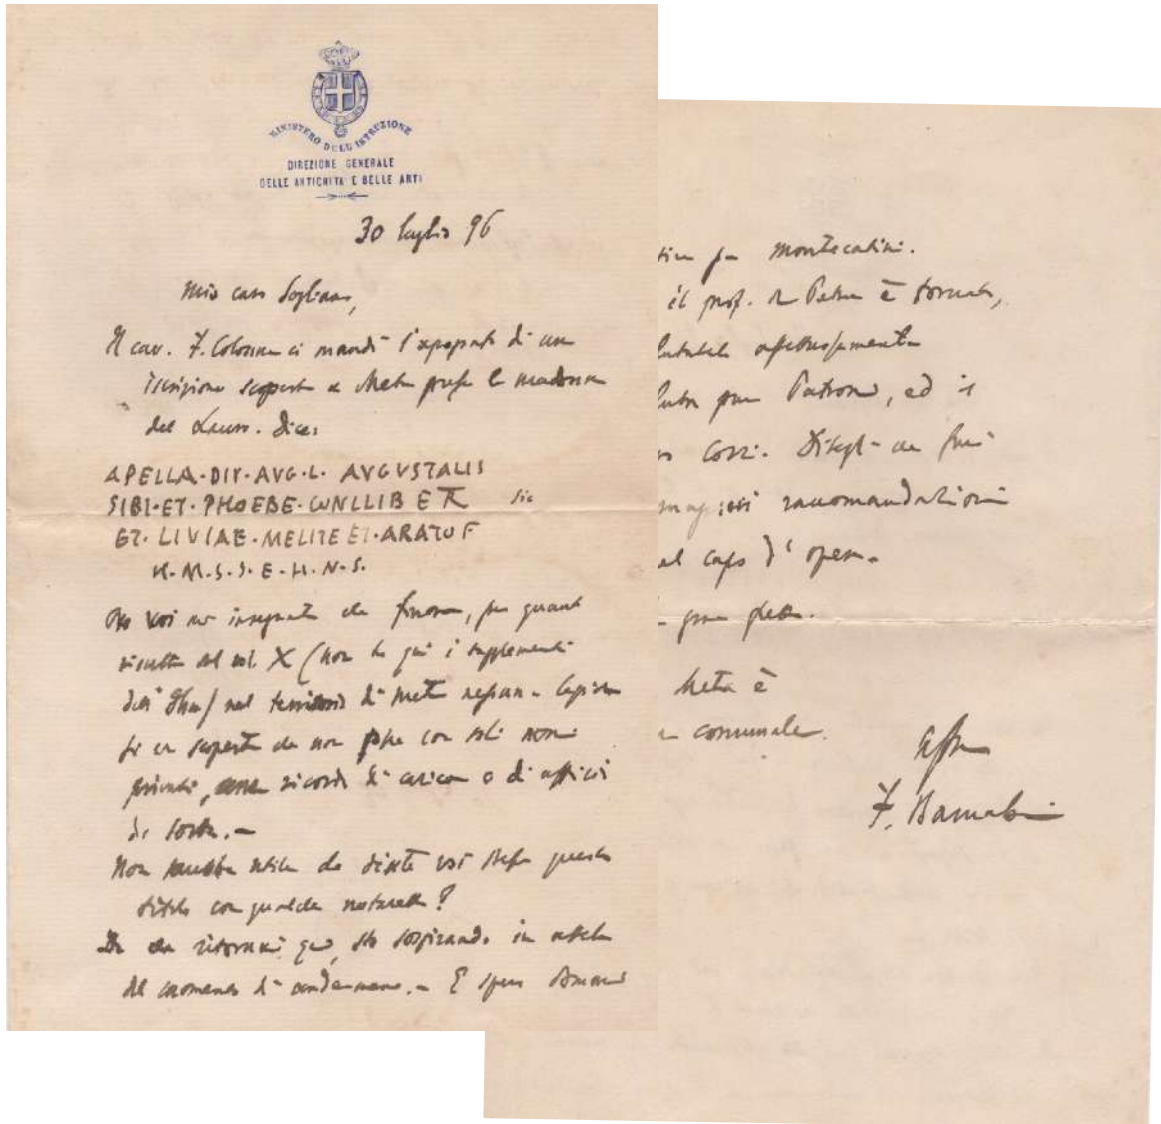 MINISTERO DELL'ISTRUZIONE
DIREZIONE GENERALE
DELLE ANTICHITA E BELLE ARTI
30 luglio 96
Mio caro Sogliano,
Il cav. F. Colonna ci mandò l'apografo di una
iscrizione scoperta a Meta presso la madonna
del Lauro. Dice:
APELLA·DIV·AVG·L· AVGVSTALIS
SIBI·ET·PHOEBE·CONLLIBER sic
ET·LIVIAE·MELITE ET·ARATO F
H·M·S·S·E·H·N·S·
Ora voi mi insegnate che finora, per quanto
risulta dal vol. X (non ho qui i supplementi
dell' Ihm) nel territorio di Meta nessuna lapide
si era scoperta che non fosse con soli nomi
privati, senza ricordi di carica o di uffici
di sorta. —
Non sarebbe utile che diate voi stesso questo
titolo con qualche noterella?
Da che ritornai qui, sto sospirando in attesa
del momento di andarmene. — E spero domani
per Montecatini.
il prof. De Petra è tornato,
affettuosamente
pure Patroni, ed il
Cozzi.
raccomandazioni
al capo d'opera
Meta è
comunale.
aff.mo
F. Barnabei